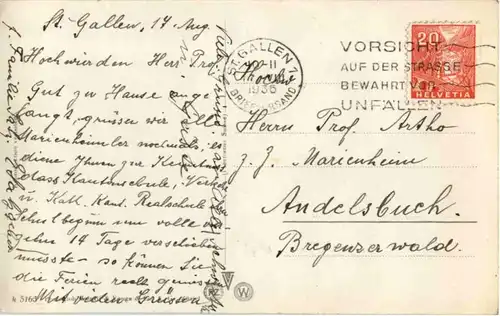 St. Gallen, 17 Aug.
Hochwürden Herr Prof.
Gut zu Hause ange
langt, grüssen wir alle
Marienheimler nochmals; es
diene Ihnen zur Kenntnis
dass Kantonsschule, Verkehr
u. Kath. Kant. Realschule
Schulbeginn um volle
zehn 14 Tage verschieben
musste - so können Sie
die Ferien recht genie
Mit vielen Grüssen
ST. GALLEN 1
1936
BRIEFVERSAND
VORSICHT
AUF DER STRASSE
BEWAHRT VOR
UNFÄLLEN
20
HELVETIA
Herrn Prof. Artho
z. Z. Marienheim
Andelsbuch.
Bregenzerwald.
W